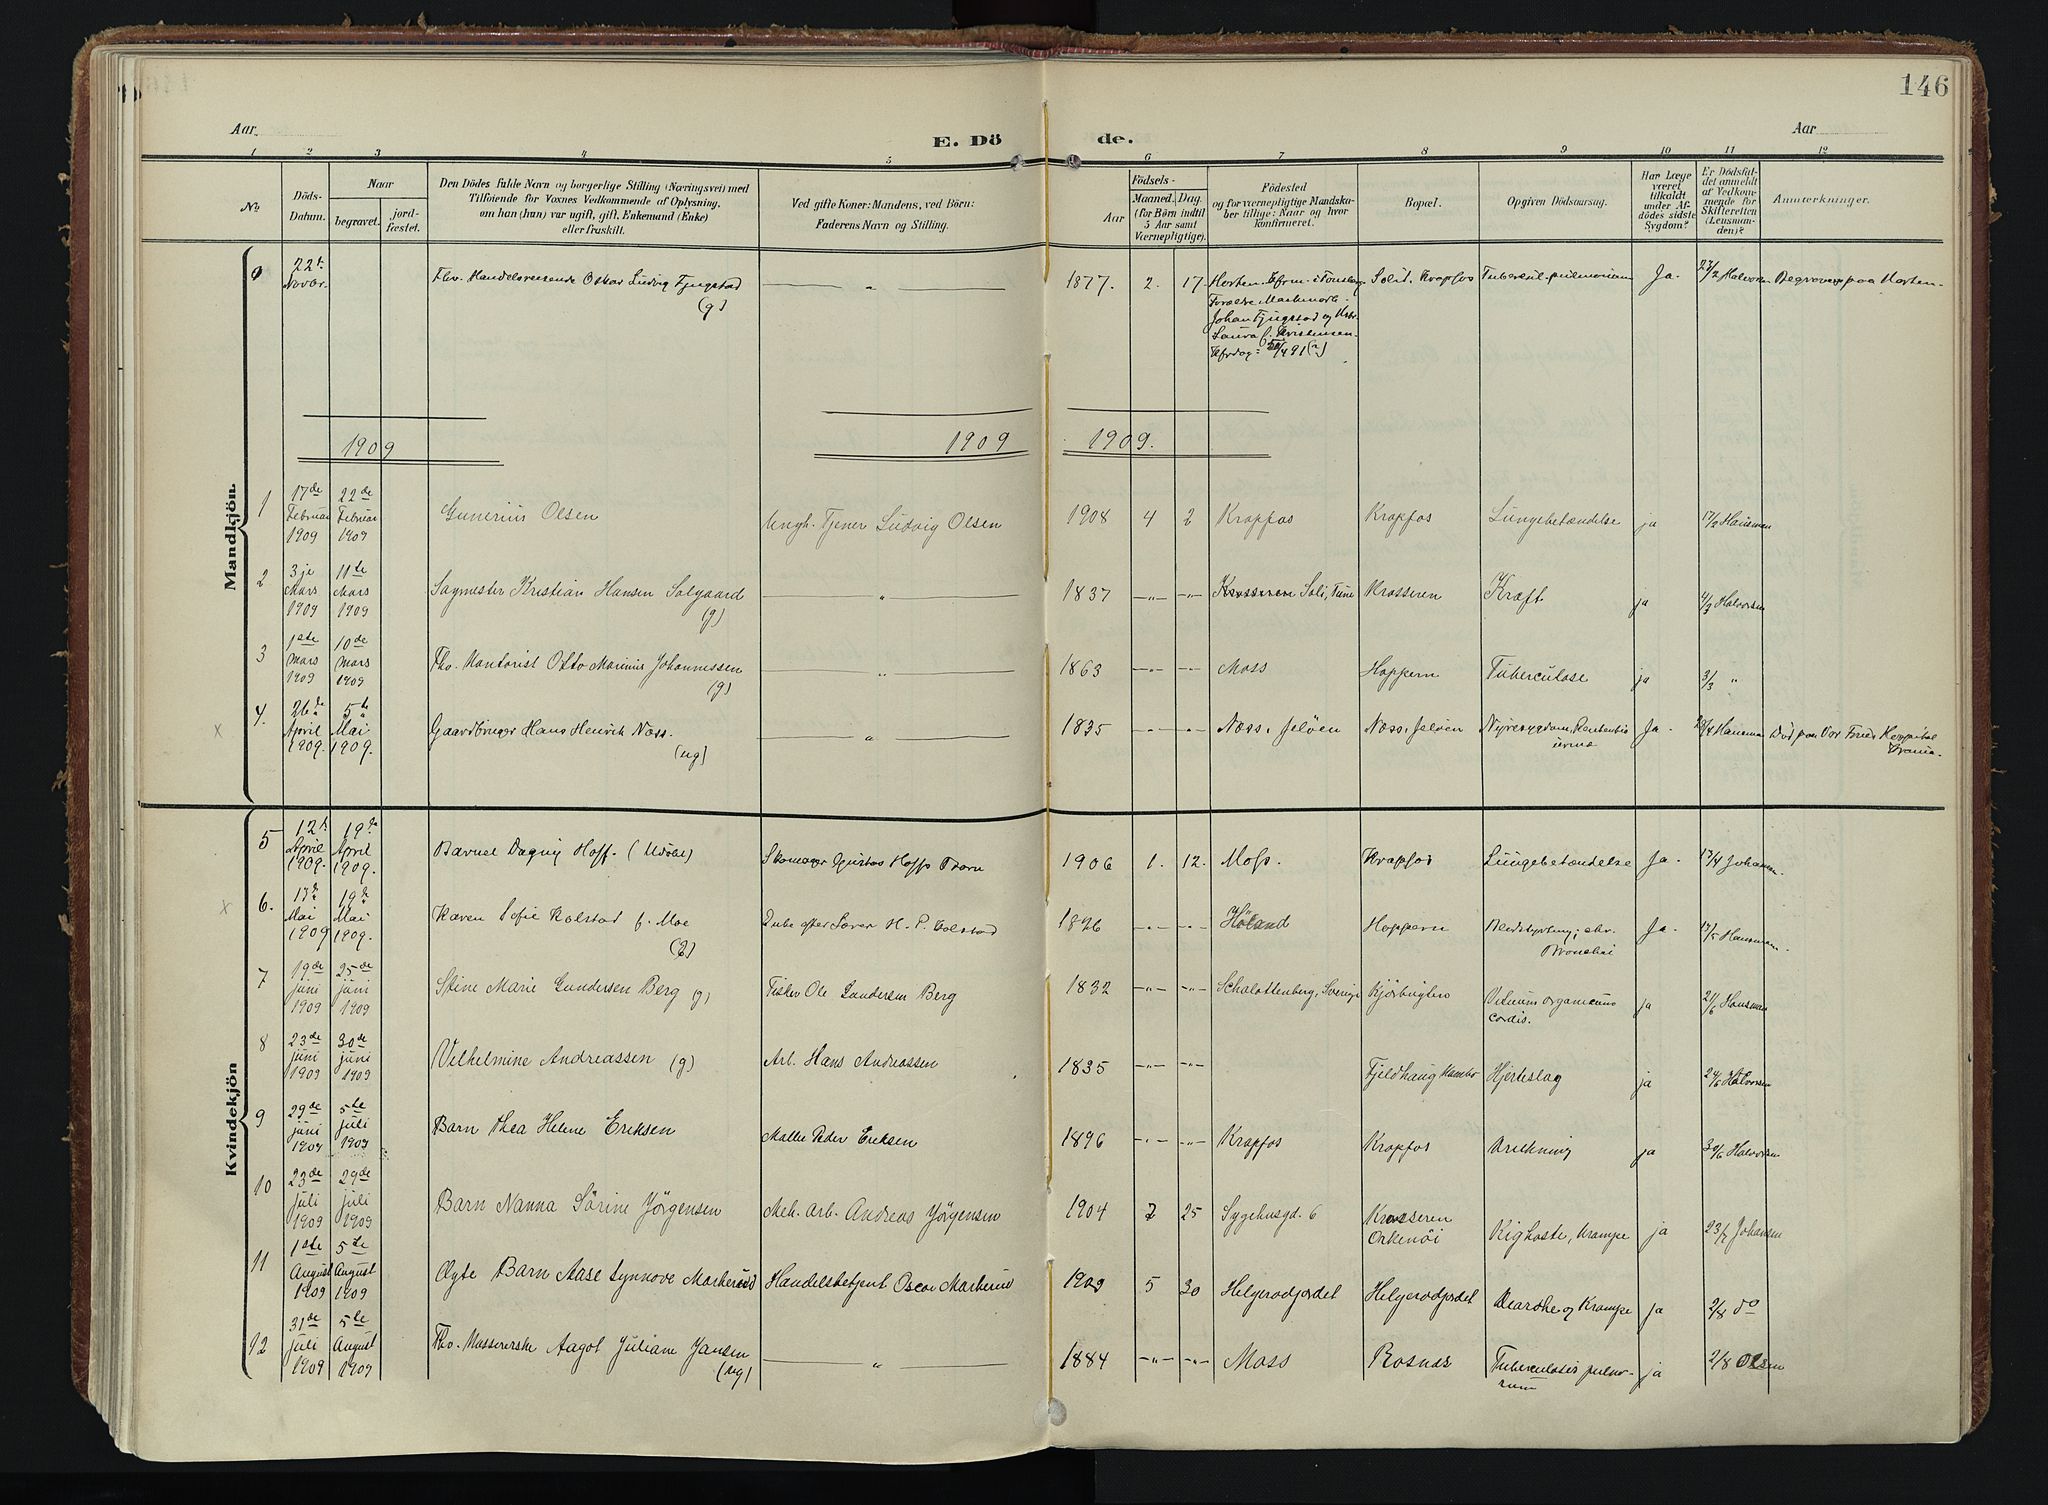 146
Aar
E. Dö
de.
Aar
1 2 3 4 5 6 7 8 9 10 11 12
No. Döds-Datum. Naar begravet. jord-fæstet.
Den Dödes fulde Navn og borgerlige Stilling (Næringsvei) med
Tilföiende for Voxnes Vedkommende af Oplysning,
om han (hun) var ugift, gift, Enkemand (Enke)
eller fraskilt.
Ved gifte Koner: Mandens, ved Börn:
Faderens Navn og Stilling.
Födsels-
Aar Maaned. Dag.
(for Börn indtil
5 Aar samt
Værnepligtige).
Födested
og for værnepligtige Mandska-
ber tillige: Naar og hvor
konfirmeret.
Bopæl.
Opgiven Dödsaarsag.
Har Læge
været
tilkaldt
under Af-
dödes sidste
Sygdom?
Er Dödsfal-
det anmeldt
af Vedkom-
mende for
Skifteretten
(Lensman-
den)?
Anmærkninger.
Mandkjön.
22 Novbr. Fhv. Handelsreisende Oskar Ludvig Fjugstad (g) — " — 1877. 2. 17 Horten
Johan Fjugstad og
Laura f. Kristensen
Solid. Krapfos Tubercul. pulmonum Ja. Halvorsen Begraves paa Horten
1909 1909 1909.
1 17de Februar 1909 22de Februar 1909 Gunerius Olsen Ungk. Tjener Ludvig Olsen 1908 4 2 Krapfos Krapfos Lungebetændelse ja 17/2 Hansman
2 3je Mars 1909 11te Mars 1909 Sagmester Kristian Hansen Solgaard (g) — " — 1837 -"- -"- Krosseren Soli, Tune Krosseren Kræft. ja 4/3 Halvorsen
3 1ste Mars 1909 10de Mars 1909 Fhv. Kontorist Otto Marinus Johannessen (g) — " — 1863 -"- -"- Moss Hoppern Tuberculose ja 3/3 "
x 4. 26de April 1909. 5te Mai 1909. Gaardbruger Hans Henrik Næss. (ug) — " — 1835 -"- -"- Næss, Jelöen Næss, Jelöen Nyresygdom, Ja. 28/4 Hansman Död paa Vor Frues Hospital Krania.
Kvindekjön
5 12te April 1909. 19de April 1909. Barnet Dagny Hoff. (Udöbt) Skomager Gustav Hoffs Barn 1906 1. 12. Moss. Krapfos Lungebetændelse Ja. 13/4 Johansen.
x 6. 13de Mai 1909 19de Mai 1909. Karen Sofie Kolstad f. Moe Enke efter Lærer H. P. Kolstad 1826 -"- -"- Höland Hoppern Blodstyrtning; chr. Bronchi Ja. 13/5 Hansman.
7 19de juni 1909 25de juni 1909 Stine Marie Gundersen Berg (g) Fisker Ole Gundersen Berg 1832 -"- -"- Schalottenberg, Sverige Vitium organicum cordis. ja 21/6 Hansman
8 23de juni 1909 30de juni 1909 Vilhelmine Andreassen (g) Arb. Hans Andreassen 1835 -"- -"- Fjeldhaug Kambo Hjerteslag ja 24/6 Halvorsen
9 29de juni 1909 5te juli 1909 Barn Thea Helene Eriksen Malle Peder Eriksen 1896 -"- -"- Krapfos Krapfos Drukning ja 30/6 Halvorsen
10 23de juli 1909 29de juli 1909 Barn Nanna Sörine Jörgensen Mek. arb. Andreas Jörgensen 1904 7 25 Sygehusgd. 6 Krosseren Orkenöi Kighoste, Krampe ja 23/7 Johansen
11 1ste August 1909 5te August 1909 Ægte Barn Aase Synnove Markerud Handelsbetjent Oscar Markerud 1909 5 30 Helgerödjordet Helgerödjordet Diarrhe og Krampe ja 2/8 do
12 31de juli 1909 5te August 1909 Fhv. Massererske Aagot Juliane Jansen (ug) — " — 1884 -"- -"- Moss Rosnæs Tuberculosis pulmo-
num ja 2/8 Olsen